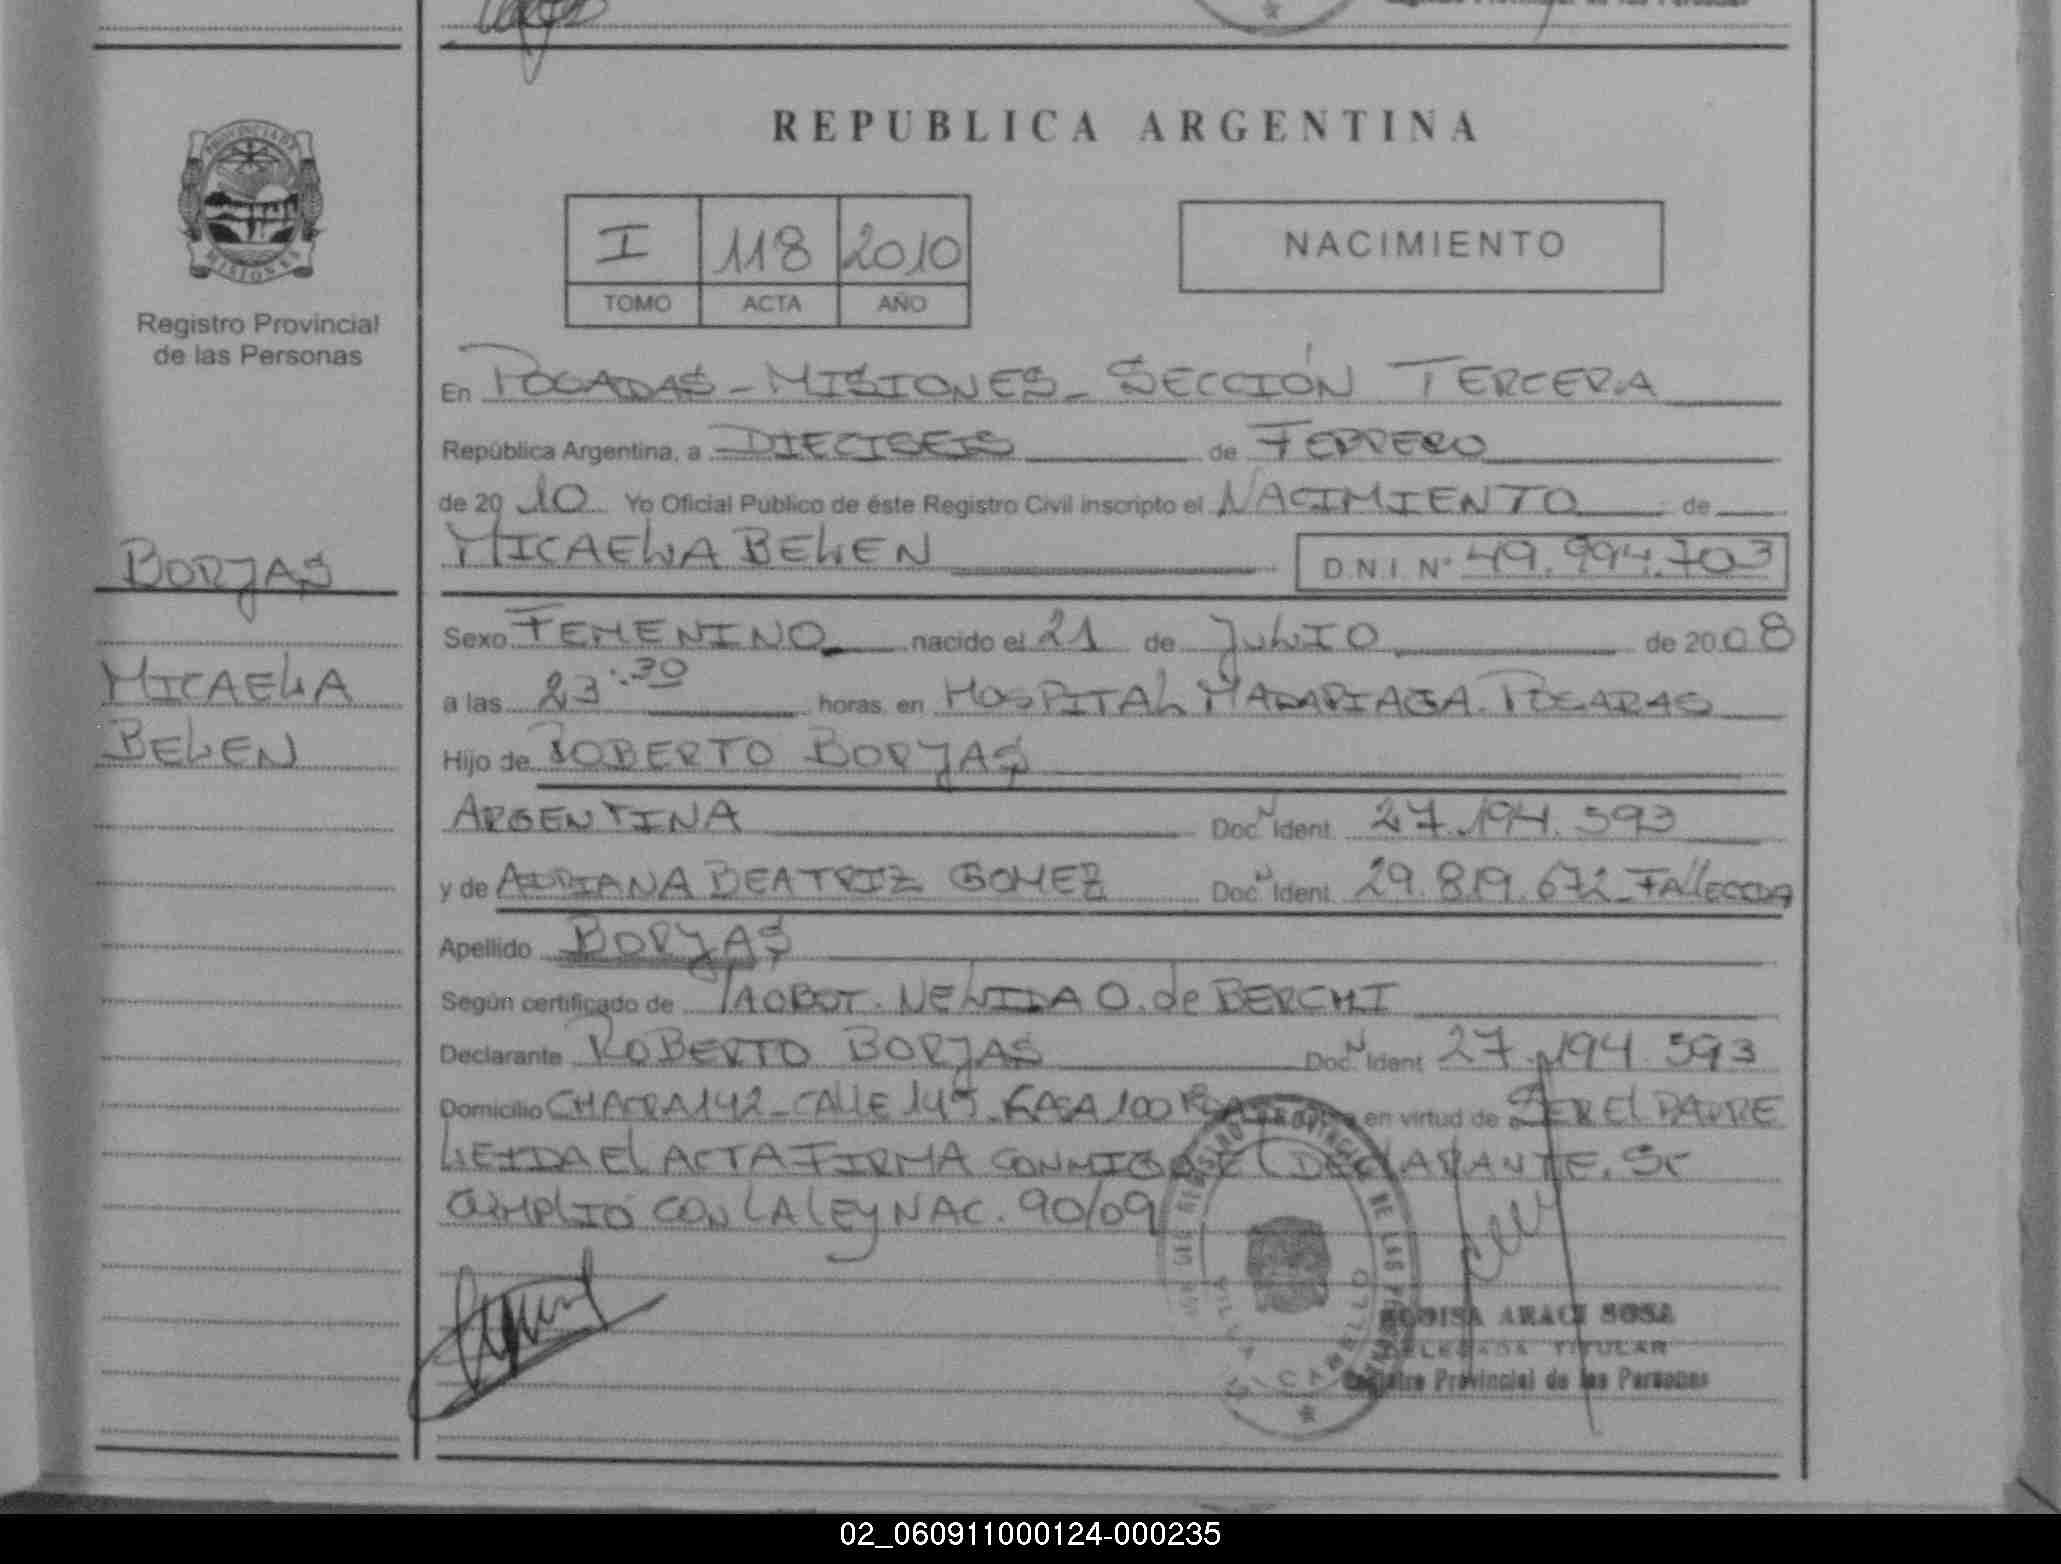 REPUBLICA ARGENTINA
PROVINCIA DE
MISIONES
Registro Provincial
de las Personas
I 118 2010
TOMO ACTA AÑO
NACIMIENTO
En POSADAS - MISIONES - SECCIÓN TERCERA
República Argentina, a DIECISEIS de FEBRERO
de 2010 Yo Oficial Público de éste Registro Civil inscripto el NACIMIENTO de
MICAELA BELEN D.N.I. Nº 49.994.703
BORJAS
MICAELA
BELEN
Sexo FEMENINO nacido el 21 de JULIO de 2008
a las 23:30 horas. en HOSPITAL MADARIAGA. POSADAS
Hijo de ROBERTO BORJAS
ARGENTINA Doc. N Ident. 27.194.593
y de ADRIANA BEATRIZ GOMEZ Doc. N Ident. 29.819.672 - FALLECIDA
Apellido BORJAS
Según certificado de NELIDA O. de BERCHI
Declarante ROBERTO BORJAS Doc. N Ident. 27.194.593
Domicilio CHACRA 142 - CALLE 145 - CASA 100 en virtud de SER EL PADRE
LEIDA El ACTA FIRMA CONMIGO El DECLARANTE. Se
CUMPLIO CON LA LEY NAC. 90/09
REGISTRO PROVINCIAL DE LAS PERSONAS
VILLA CABELLO
ARACI SOSA
DELEGADA TITULAR
Registro Provincial de las Personas
02_060911000124-000235